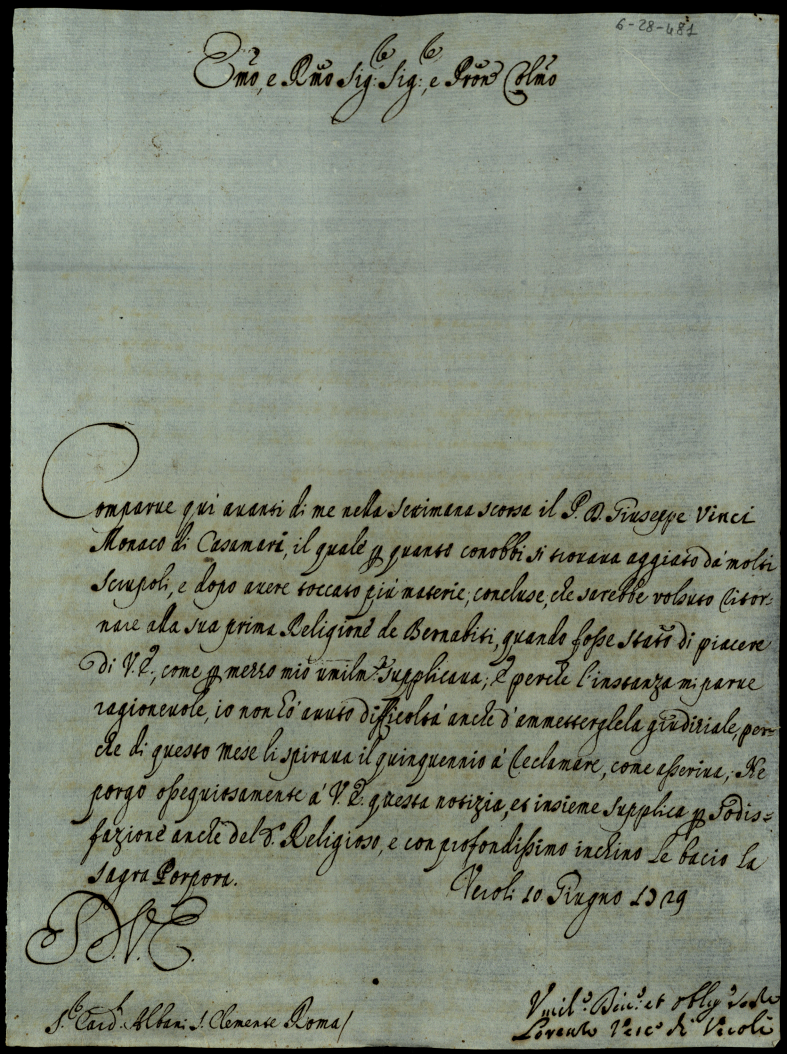 6-28-481
Emo, e Rmo Sig:re Sig:re, e Pron Colmo
Comparve qui avanti di me nella settimana scorsa il P. D. Giuseppe Vinci
Monaco di Casamarà, il quale p quanto conobbi si trovava aggiato da' molti
scrupoli, e dopo avere toccato più materie, concluse, che sarebbe volsuto ritor-
nare alla sua prima Religione de Bernabiti, quando fosse stato di piacere
di V. E., come p mezzo mio umilmte supplicava; E perche l'instanza mi parve
ragionevole, io non hò avuto difficoltà anche d'ammetterglela giudiziale, per-
che di questo mese li spirava il quinquennio à reclamare, come asseriva; Ne
porgo ossequiosamente à V. E. questa notizia, et insieme supplica p sodis-
fazione anche del do Religioso, e con profondissimo inchino le bacio la
sagra Porpora.
Veroli 10 Giugno 1729
D. V. E.
S.re Card.l Albani S. Clemente Roma/
Umil.o Div.o et obblig.o
Lorenzo Vesc.o di Veroli